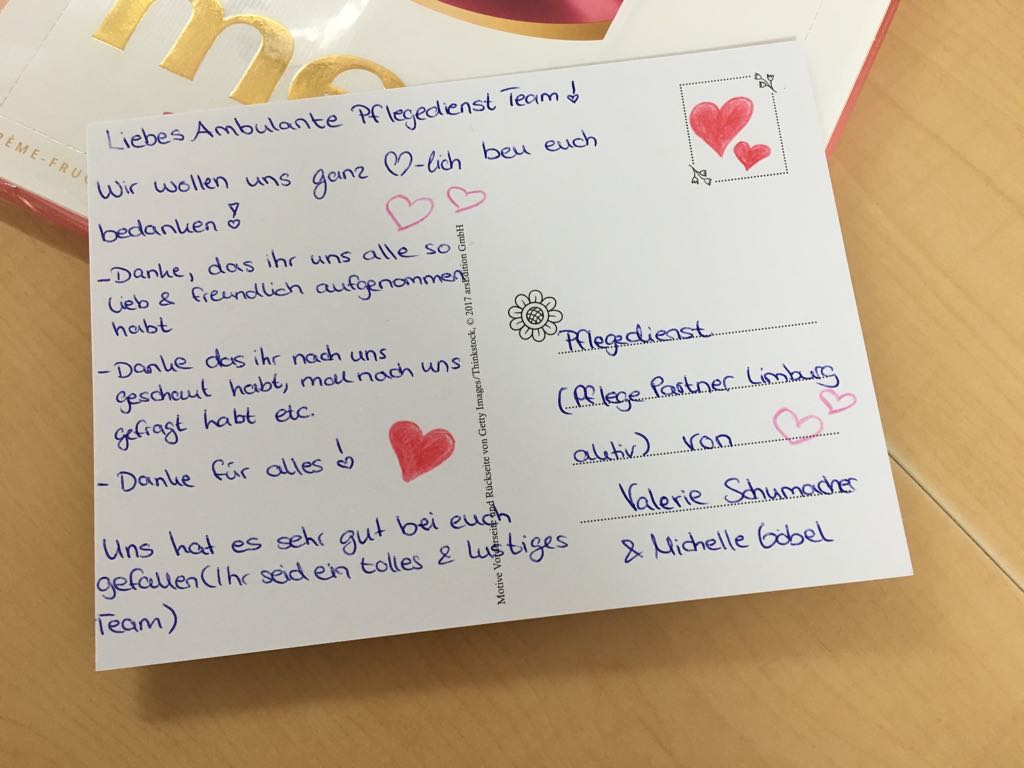 me
RÈME-FRU
Liebes Ambulante Pflegedienst Team!
Wir wollen uns ganz ♡-lich beu euch
bedanken!
-Danke, das ihr uns alle so
lieb & freundlich aufgenommen
habt
-Danke das ihr nach uns
geschaut habt, mal nach uns
gefragt habt etc.
- Danke für alles!
Uns hat es sehr gut bei euch
gefallen (Ihr seid ein tolles & lustiges
Team)
Motive Vorderseite und Rückseite von Getty Images/Thinkstock, © 2017 arsEdition GmbH
Pflegedienst
(Pflege Partner Limburg
aktiv) von
Valerie Schumacher
& Michelle Göbel